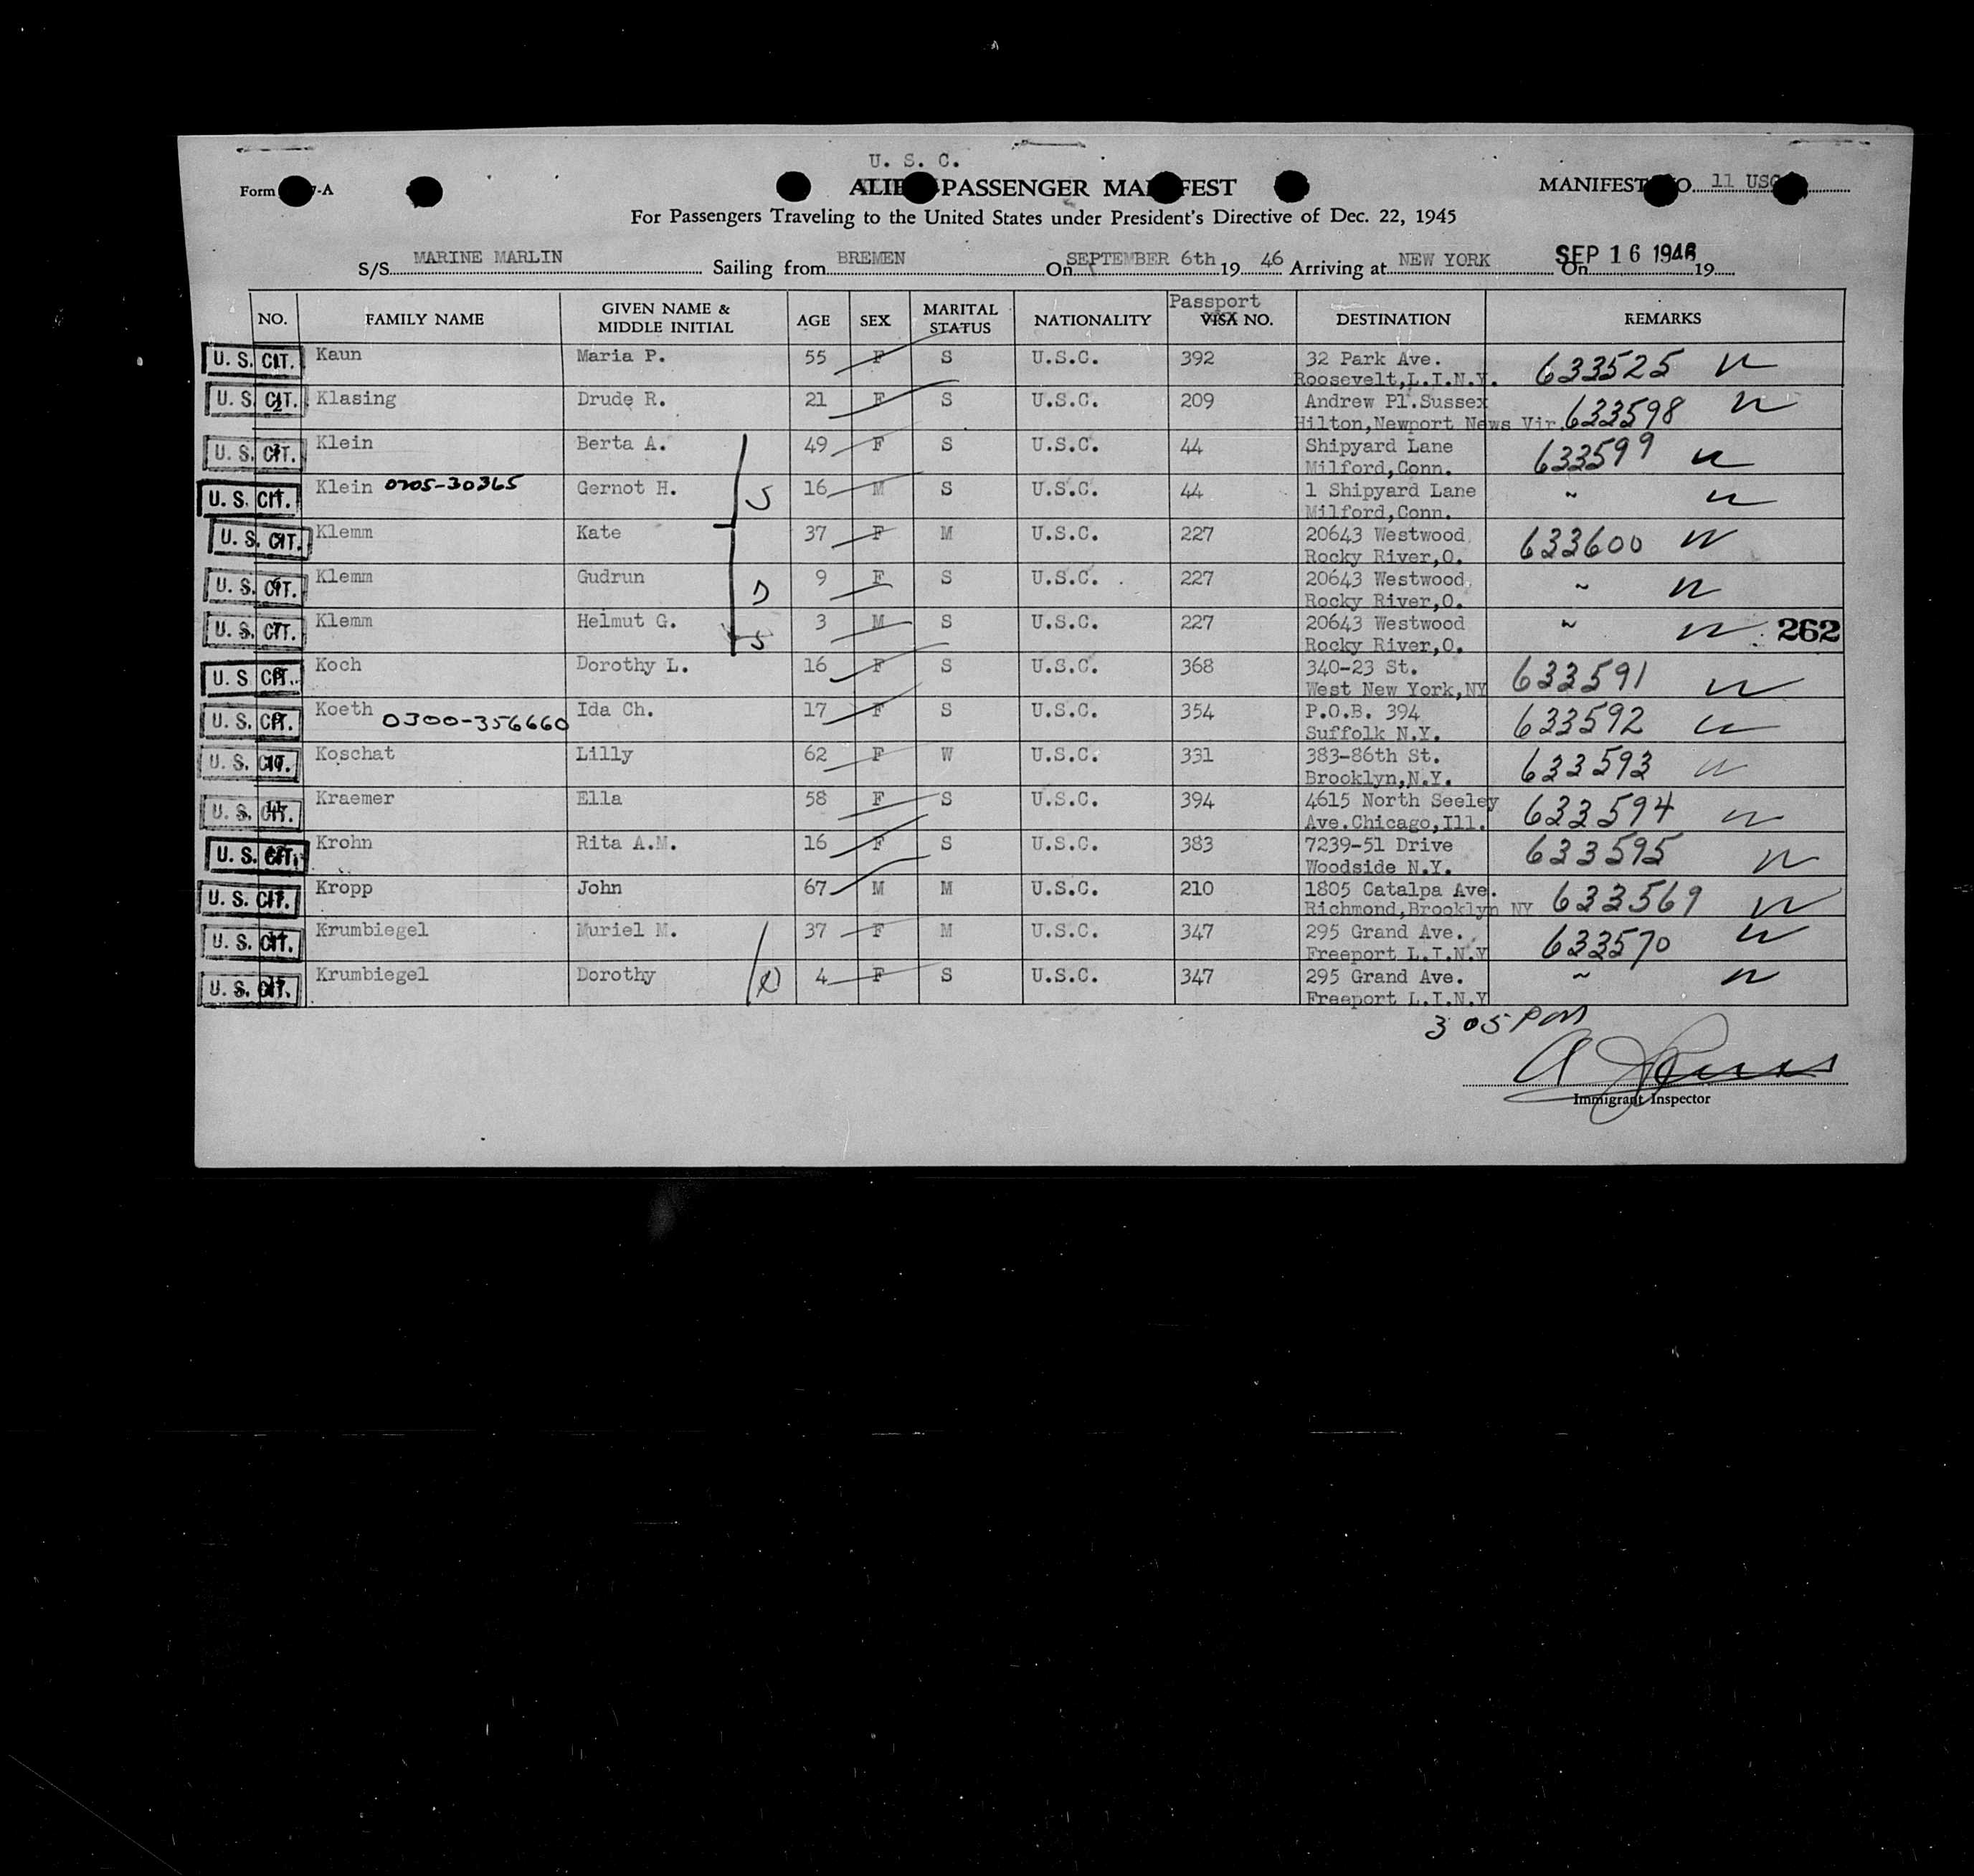 U. S. C.
Form -A
ALIE PASSENGER MA FEST
MANIFEST O. 11 USC
For Passengers Traveling to the United States under President's Directive of Dec. 22, 1945
S/S MARINE MARLIN Sailing from BREMEN On SEPTEMBER 6th 19 46 Arriving at NEW YORK On SEP 16 1946 19
Passport
NO. FAMILY NAME GIVEN NAME & MIDDLE INITIAL AGE SEX MARITAL STATUS NATIONALITY VISA NO. DESTINATION REMARKS
U. S. CIT. 1 Kaun Maria P. 55 F S U.S.C. 392 32 Park Ave. 633525
Roosevelt,L.I.N.Y.
U. S. CIT. 2 Klasing Drude R. 21 F S U.S.C. 209 Andrew Pl.Sussex 633598
Hilton,Newport News Vir.
U. S. CIT. 3 Klein Berta A. 49 F S U.S.C. 44 Shipyard Lane 633599
Milford,Conn.
U. S. CIT. 4 Klein 0705-30365 Gernot H. S 16 M S U.S.C. 44 1 Shipyard Lane "
Milford,Conn.
U. S. CIT. 5 Klemm Kate 37 F M U.S.C. 227 20643 Westwood 633600
Rocky River,O.
U. S. CIT. 6 Klemm Gudrun D 9 F S U.S.C. 227 20643 Westwood "
Rocky River,O.
U. S. CIT. 7 Klemm Helmut G. S 3 M S U.S.C. 227 20643 Westwood " 262
Rocky River,O.
U. S. CIT. 8 Koch Dorothy L. 16 F S U.S.C. 368 340-23 St. 633591
West New York,NY
U. S. CIT. 9 Koeth 0300-356660 Ida Ch. 17 F S U.S.C. 354 P.O.B. 394 633592
Suffolk N.Y.
U. S. CIT. 10 Koschat Lilly 62 F W U.S.C. 331 383-86th St. 633593
Brooklyn,N.Y.
U. S. CIT. 11 Kraemer Ella 58 F S U.S.C. 394 4615 North Seeley 633594
Ave.Chicago,Ill.
U. S. CIT. 12 Krohn Rita A.M. 16 F S U.S.C. 383 7239-51 Drive 633595
Woodside N.Y.
U. S. CIT. 13 Kropp John 67 M M U.S.C. 210 1805 Catalpa Ave. 633569
Richmond,Brooklyn NY
U. S. CIT. 14 Krumbiegel Muriel M. 37 F M U.S.C. 347 295 Grand Ave. 633570
Freeport L.I.N.Y
U. S. CIT. 15 Krumbiegel Dorothy D 4 F S U.S.C. 347 295 Grand Ave. "
Freeport L.I.N.Y
3 05 PM
Immigrant Inspector